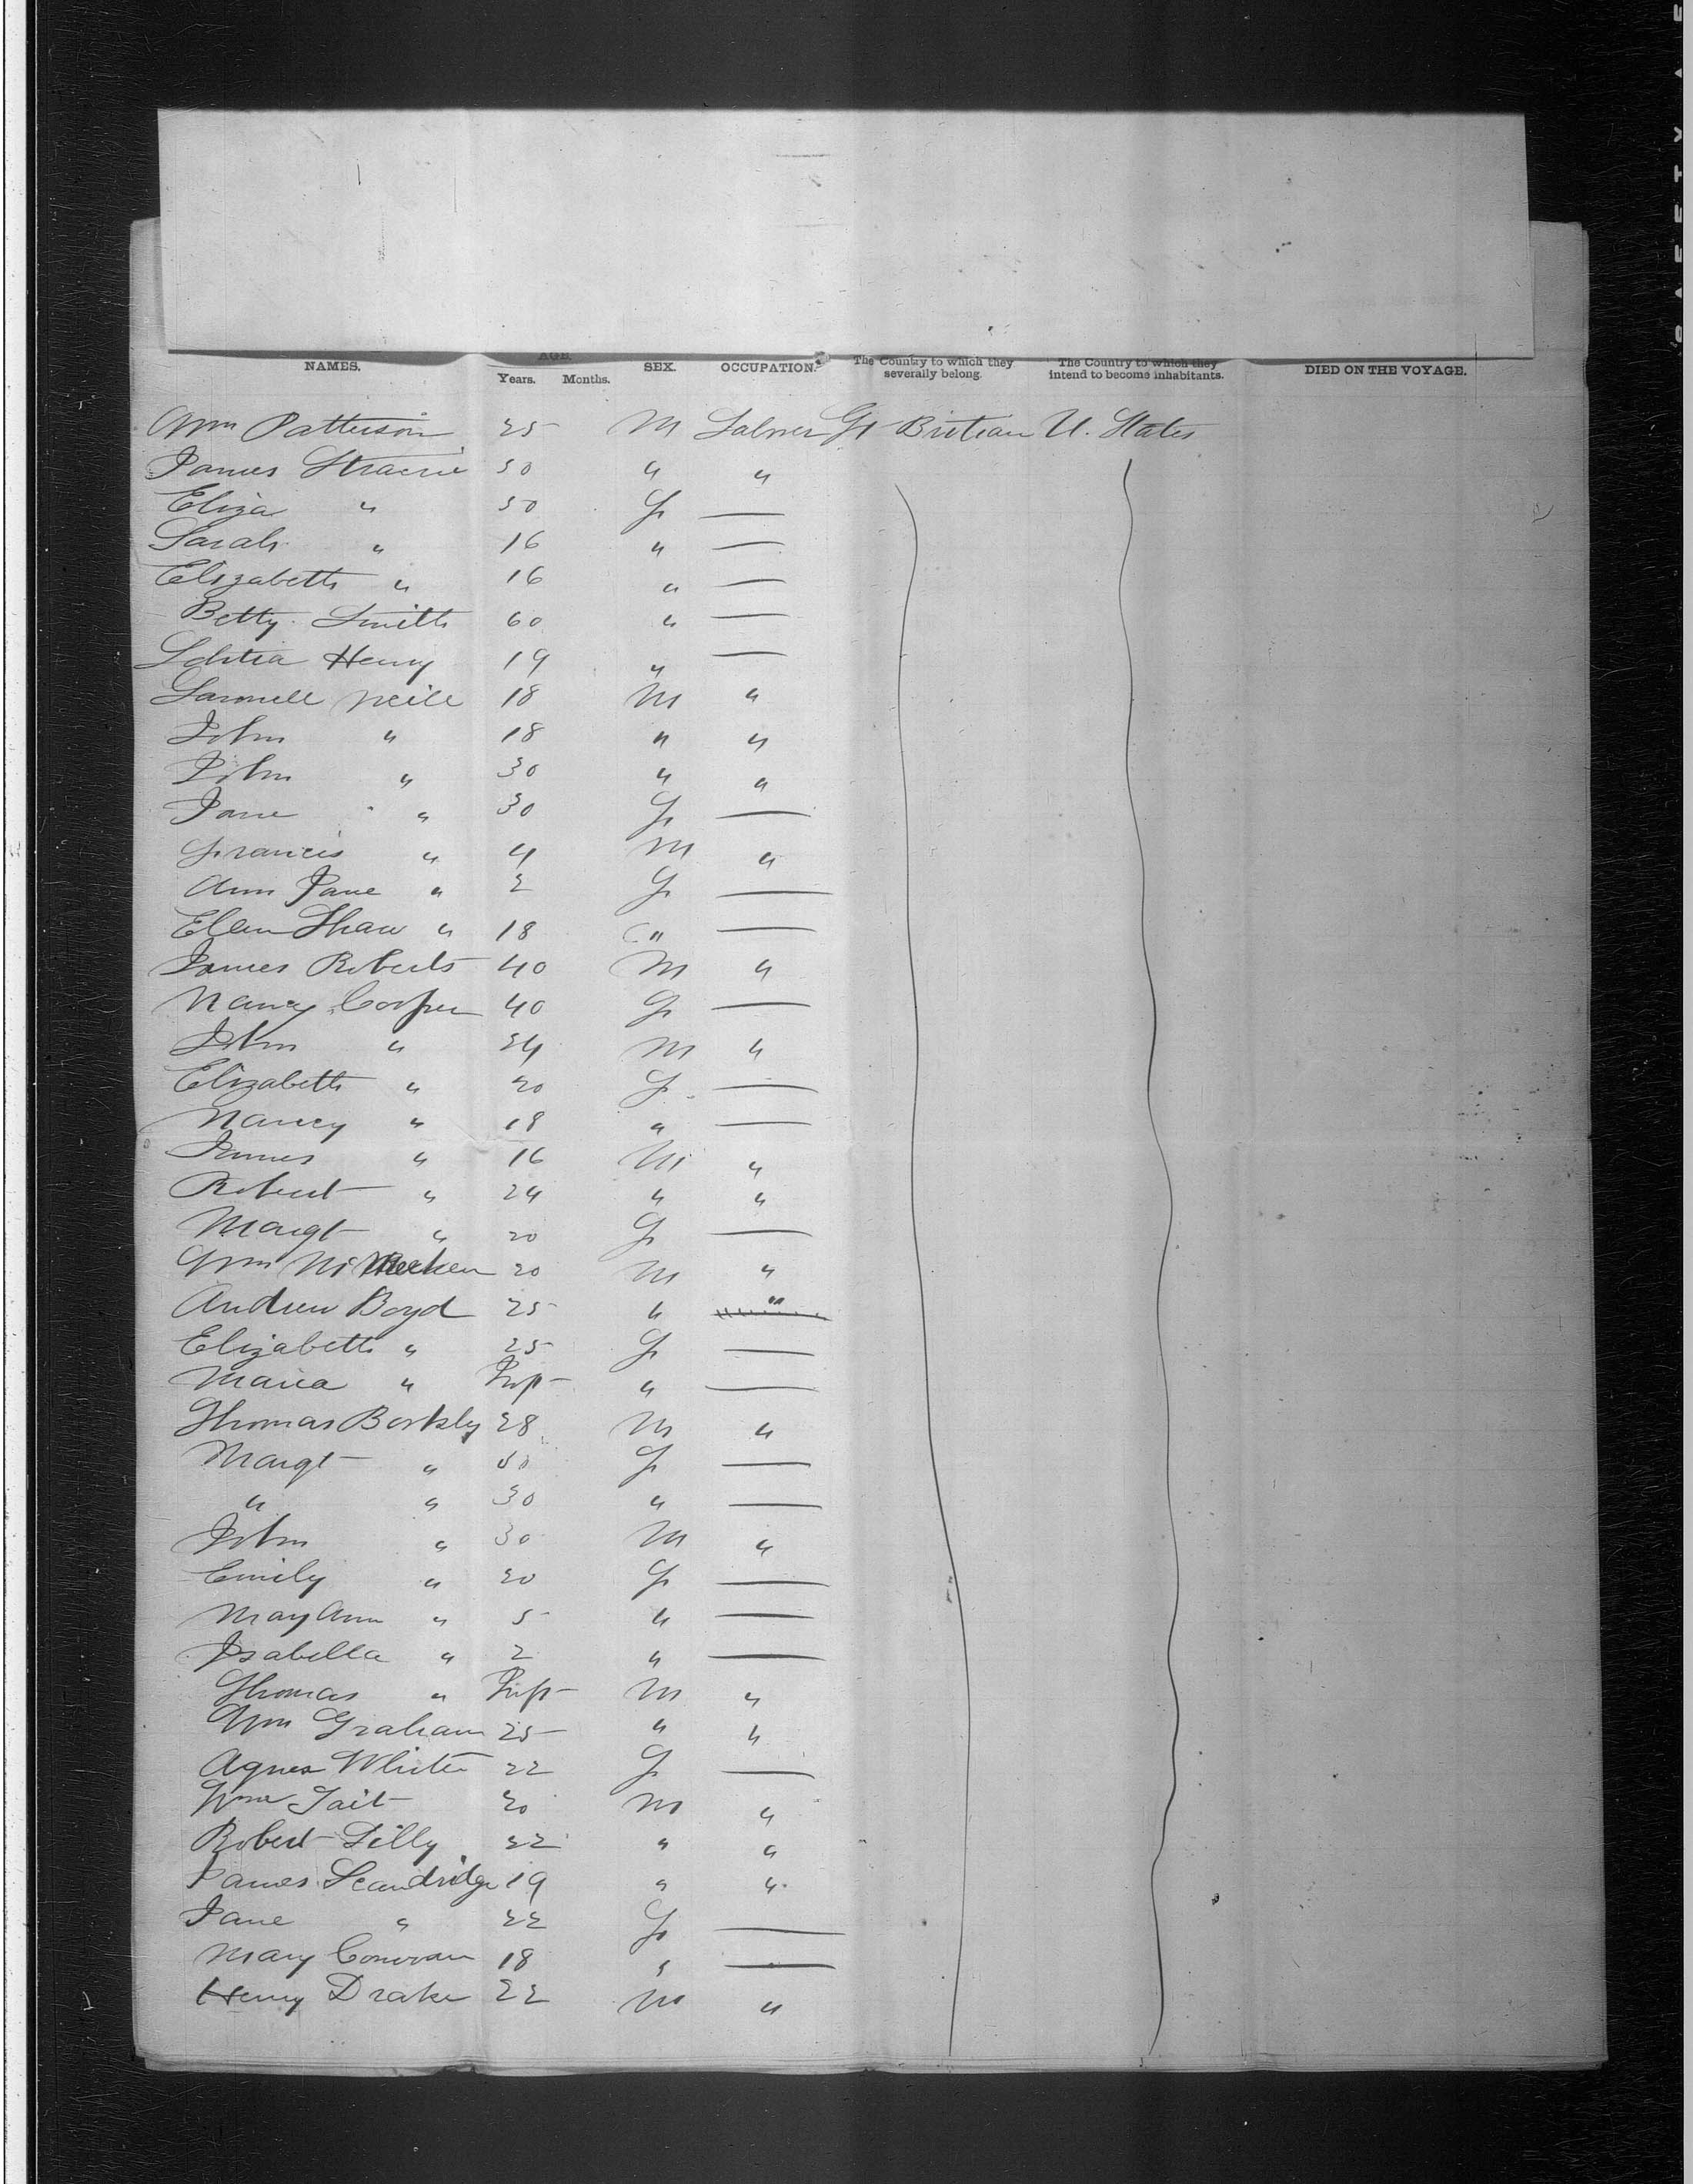 NAMES. AGE. Years. Months. SEX. OCCUPATION. The Country to which they severally belong. The Country to which they intend to become inhabitants. DIED ON THE VOYAGE.
Wm Patterson 25 M Labrer Gt Britian U. States
James 50 " "
Eliza " 50 F —
Sarah " 16 " —
Elizabeth " 16 " —
Betty Smith 60 " —
Letitia Henry 19 " —
Samuell Neill 18 M "
John " 18 " "
John " 30 " "
Jane " 30 F —
Francis " 4 M "
Ann Jane " 2 F —
Ellen Shaw " 18 " —
James Roberts 40 M "
Nancy Cooper 40 F —
John " 24 M "
Elizabeth " 20 F —
Nancy " 18 " —
James " 16 M "
Robert " 24 " "
Margt " 20 F —
Wm 20 M "
Andrew Boyd 25 " "
Elizabeth " 25 F —
Maria " Inft " —
Thomas Berkly 28 M "
Margt " F —
" " 30 " —
John " 30 M "
Emily " 20 F —
Mary Ann " 5 " —
Isabella " 2 " —
Thomas " Inft M "
Wm Graham 25 " "
Agnes White 22 F —
Wm Tait 20 M "
Robert Lilly 22 " "
James Scandridge 19 " "
Jane " 22 F —
Mary Conovan 18 " —
Henry Drake 22 M "